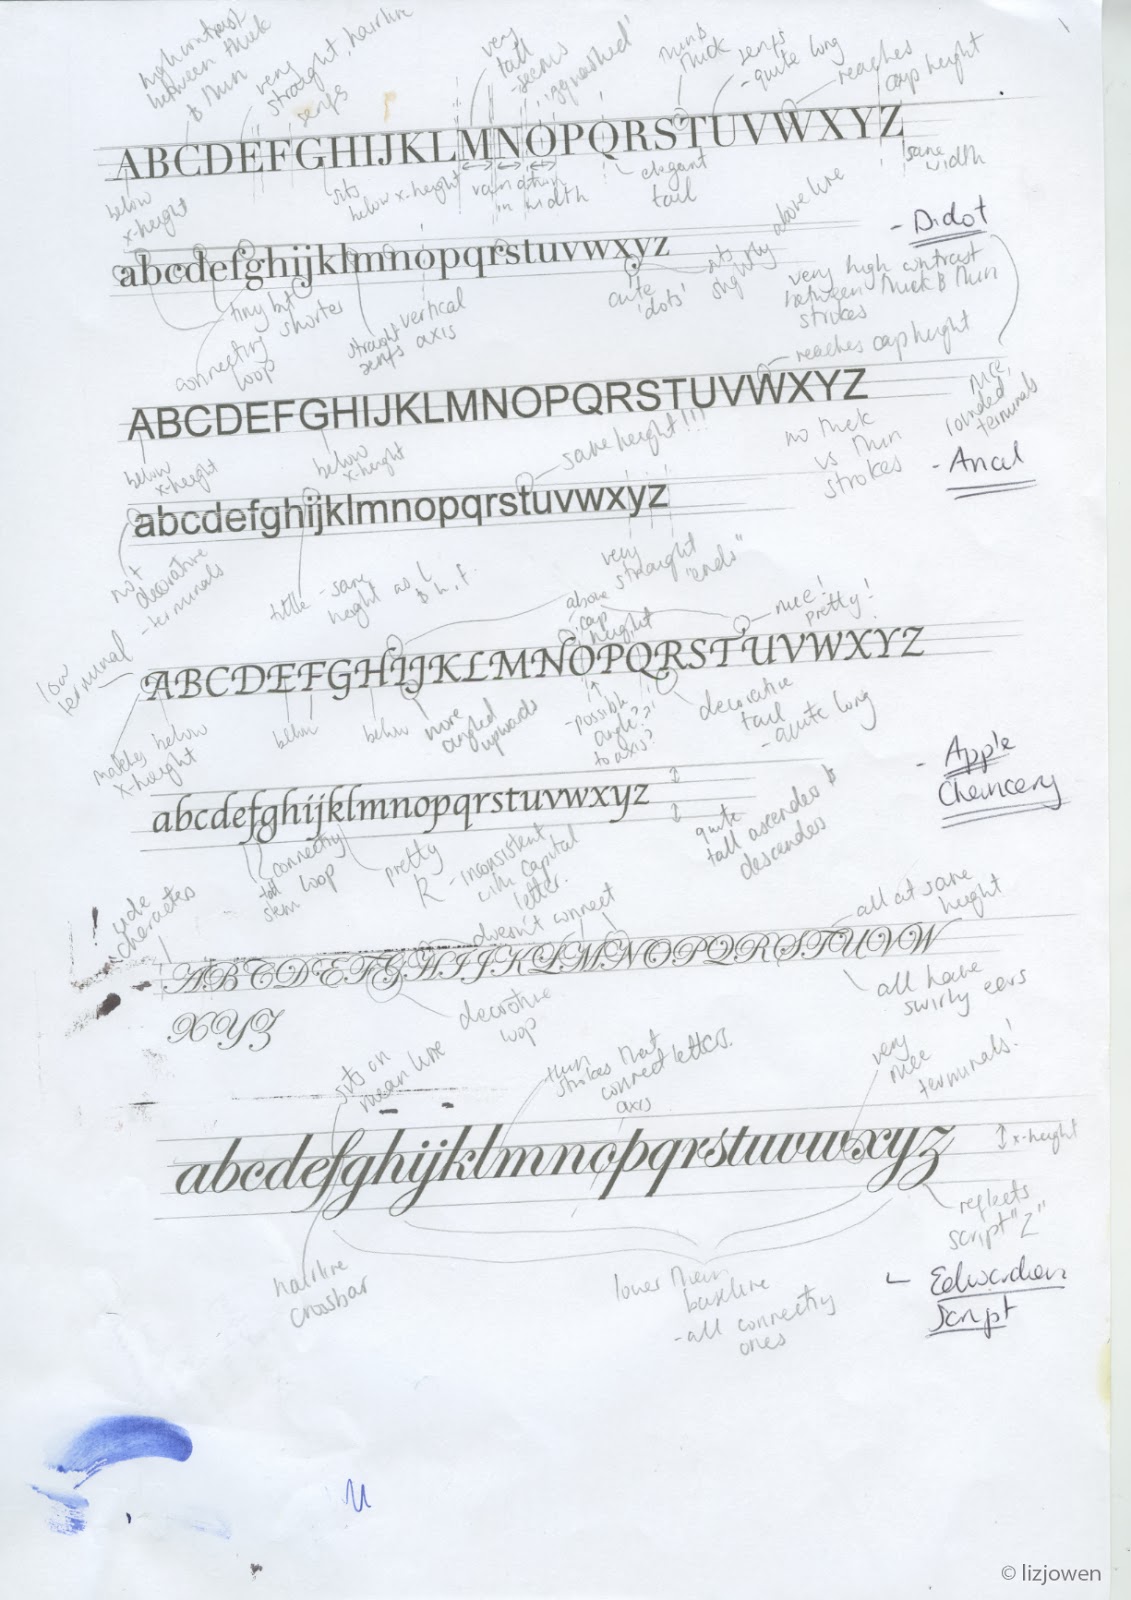 high contrast
between thick
& thin
very
straight, hairline
serifs
very
tall
- seems
'squashed'
thins
thick
serifs
- quite long
reaches
cap height
ABCDEFGHIJKLMNOPQRSTUVWXYZ
below
x-height
sits
below x-height
variation
in width
elegant
tail
same
width
- Didot
abcdefghijklmnopqrstuvwxyz
above line
sits
slightly
tiny bit
shorter
connecting
loop
straight
serifs
vertical
axis
cute
'dots'
very high contrast
between thick & thin
strokes
reaches cap height
ABCDEFGHIJKLMNOPQRSTUVWXYZ
nice,
rounded
terminals
below
x-height
below
x-height
same height!!!
no thick
vs thin
strokes
- Arial
abcdefghijklmnopqrstuvwxyz
not
decorative
- terminals
tittle - same
height as l
& h, f.
very
straight
"ends"
low
terminal
above
cap
height
nice!
pretty!
ABCDEFGHIJKLMNOPQRSTUVWXYZ
matches below
x-height
below
below
more
angled
upwards
- possible
angle??
to axis?
decorative
tail
- quite long
- Apple
Chancery
abcdefghijklmnopqrstuvwxyz
connecting
loop
tall
stem
pretty
R - inconsistent
with capital
letter.
quite
tall ascenders &
descenders
wide
characters
doesn't connect
all at same
height
ABCDEFGHIJKLMNOPQRSTUVW
XYZ
decorative
loop
all have
swirly ears
sits on
mean line
thin
strokes that
connect letters.
axis
very
nice
terminals!
abcdefghijklmnopqrstuvwxyz
x-height
reflects
script "Z"
hairline
crossbar
lower than
baseline
- all connecting
ones
- Edwardian
Script
© lizjowen